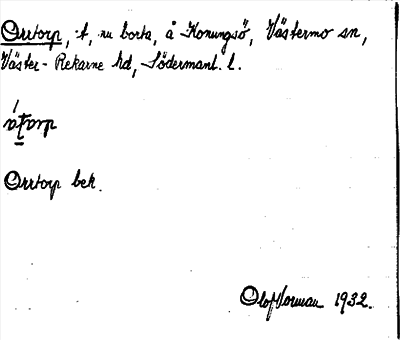 Orrtorp, t, nu borta, å Konungsö, Västermo sn,
Väster-Rekarne hd, Södermanl. l.
Orrtorp bek.
Olof Norman 1932.